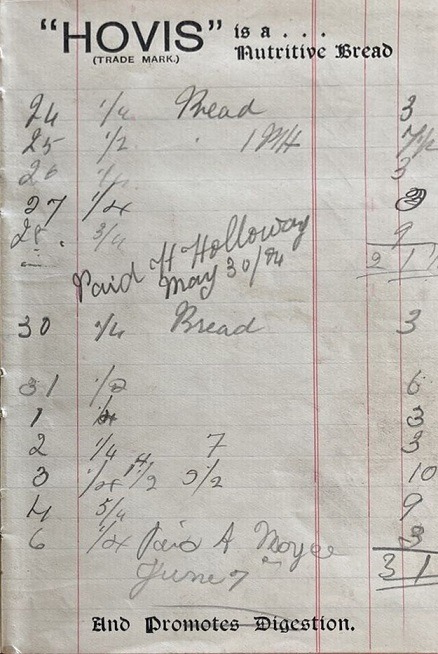 "HOVIS" is a . . .
(TRADE MARK.) Nutritive Bread
24 1/4 Bread 3
25 1/2 1 7½
26 3
27 1/4 3
28 3/4 9
Paid H Holloway 2 1 1
May 30/94
30 1/4 Bread 3
31 1/2 6
1 3
2 1/4 7 3
3 1/2 10
4 3/4 9
6 1/4 Paid A 3
June 7 3 1
And Promotes Digestion.